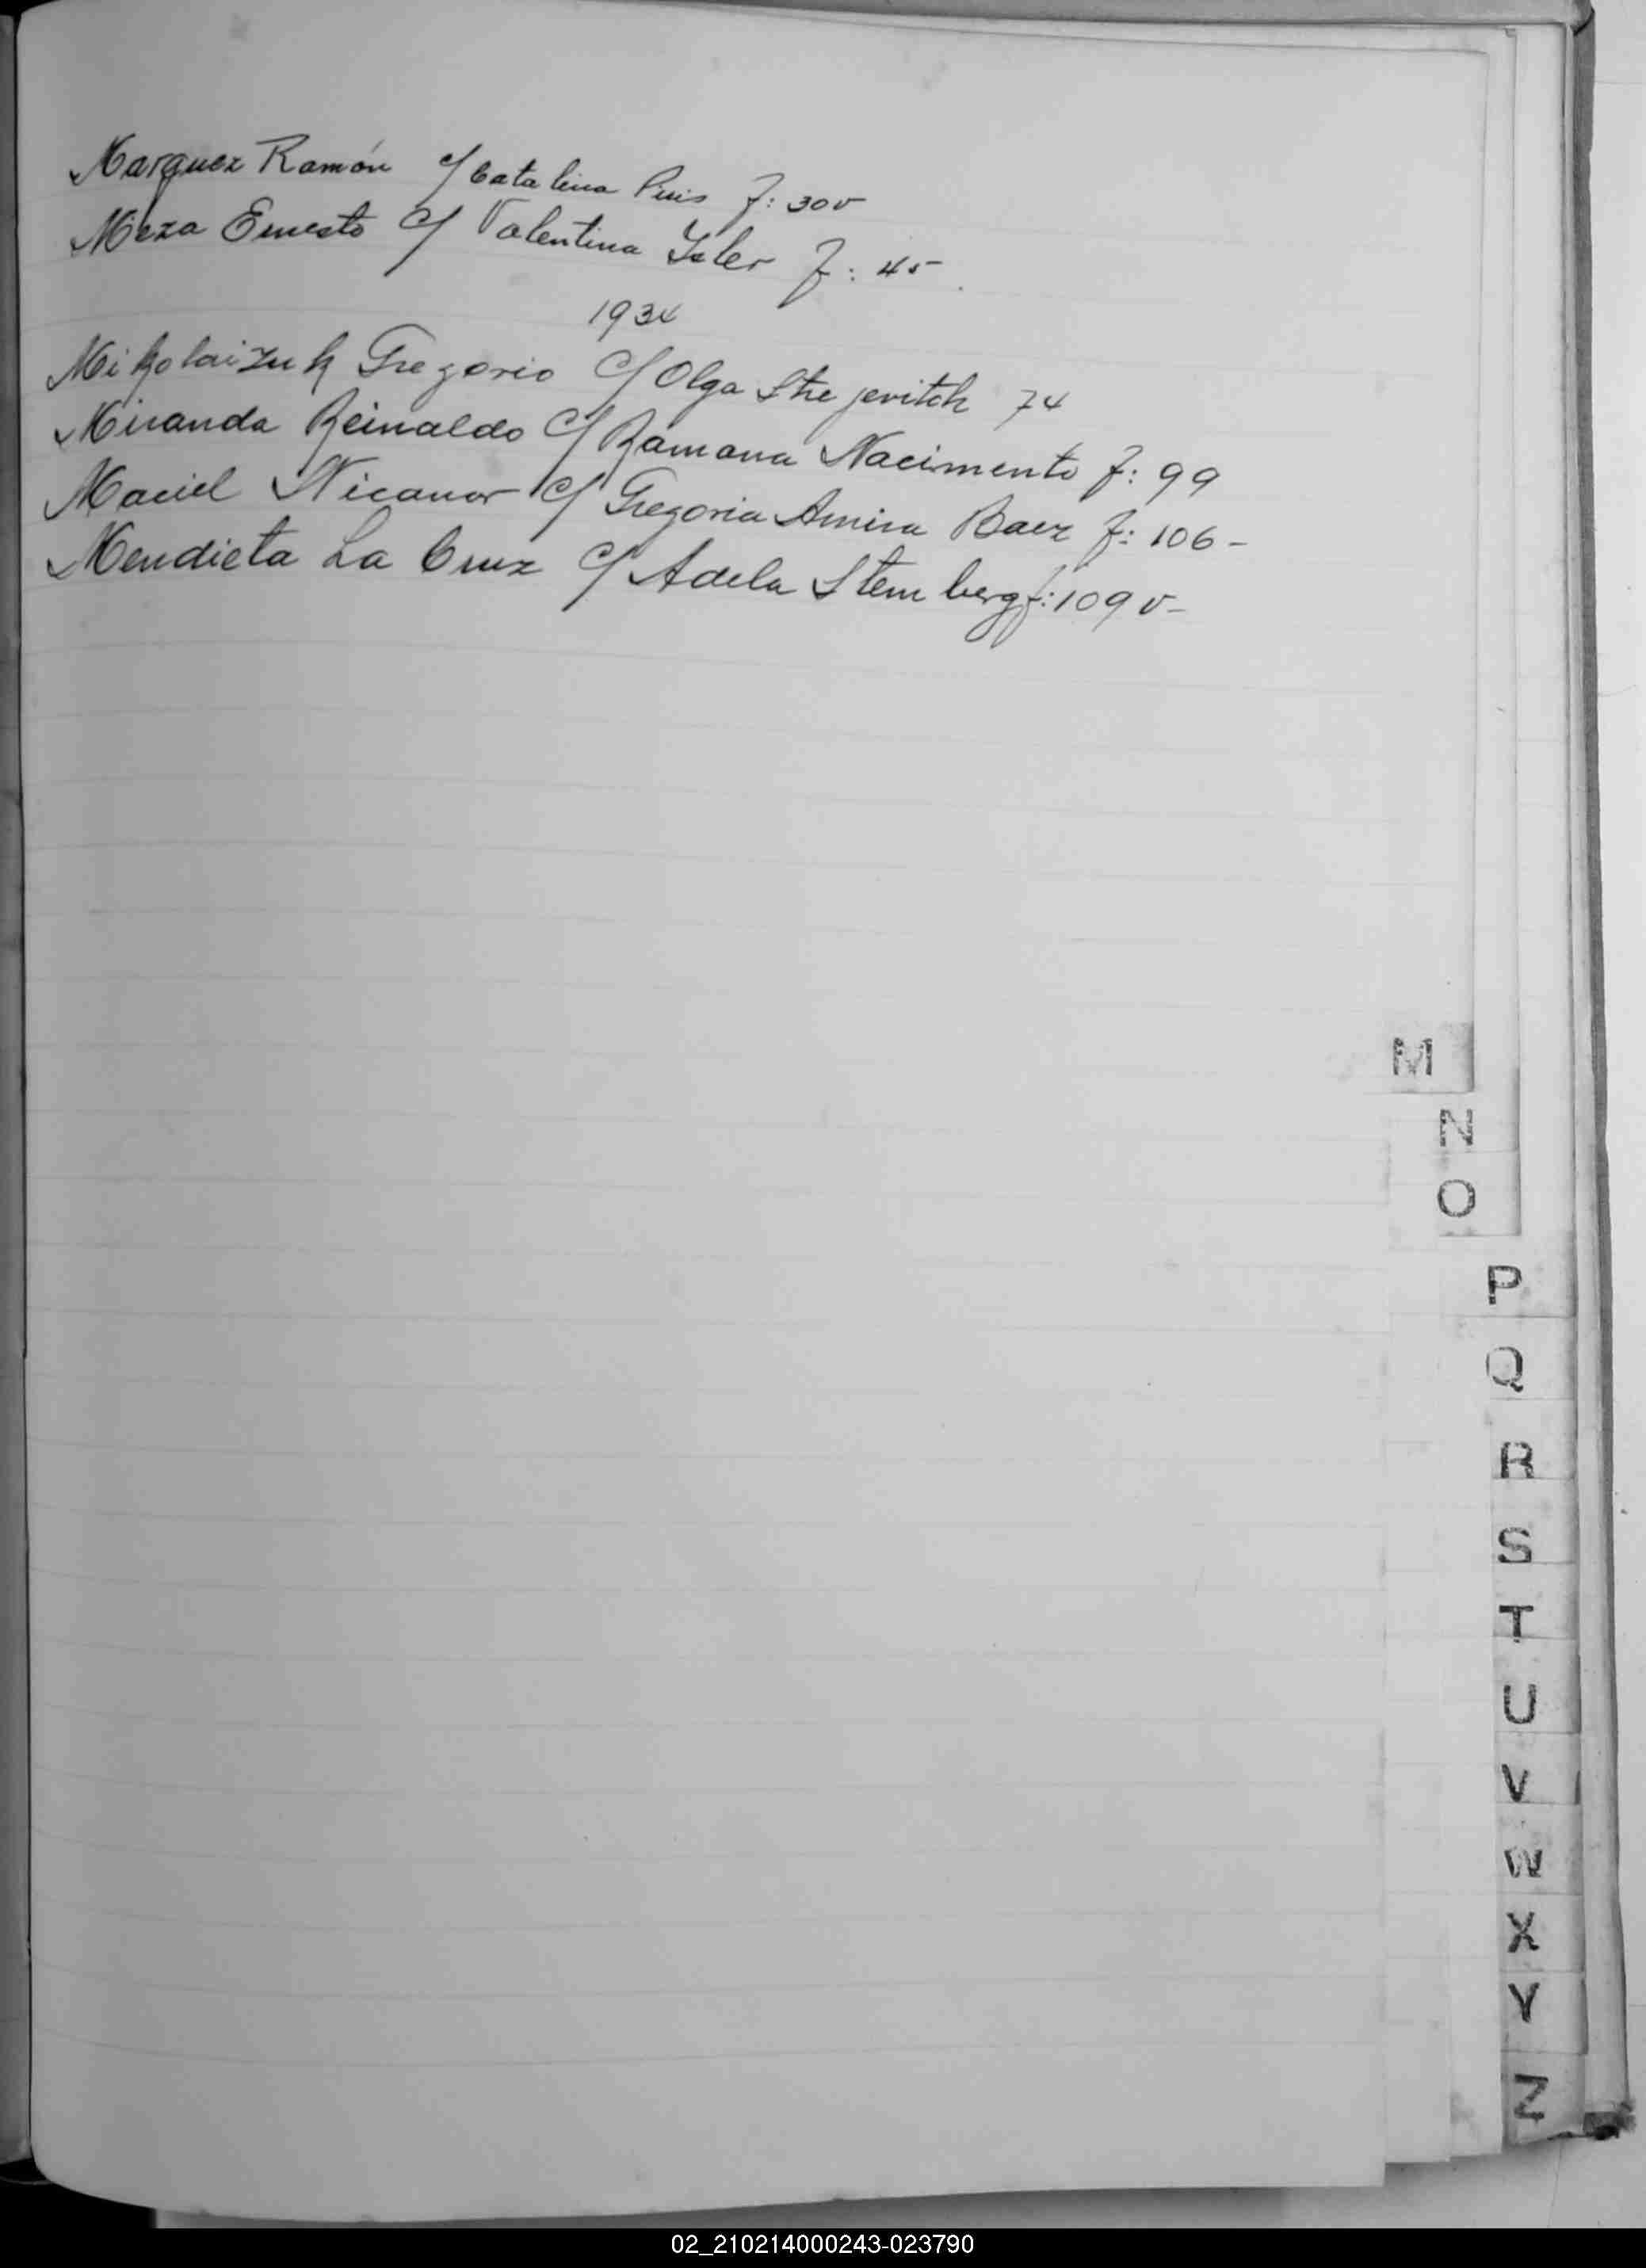 Marquez Ramón c/ Catalina Piris f: 30v
Meza Ernesto c/ Valentina Isler f: 45-
1934
Mikolaizuk Gregorio c/ Olga Strejevitch 74
Miranda Reinaldo c/ Ramona Nacimento f: 99
Maciel Nicanor c/ Gregoria Amira Baez f: 106-
Mendieta La Cruz c/ Adela Stemberg f: 109v-
M
N
O
P
Q
R
S
T
U
V
W
X
Y
Z
02_210214000243-023790